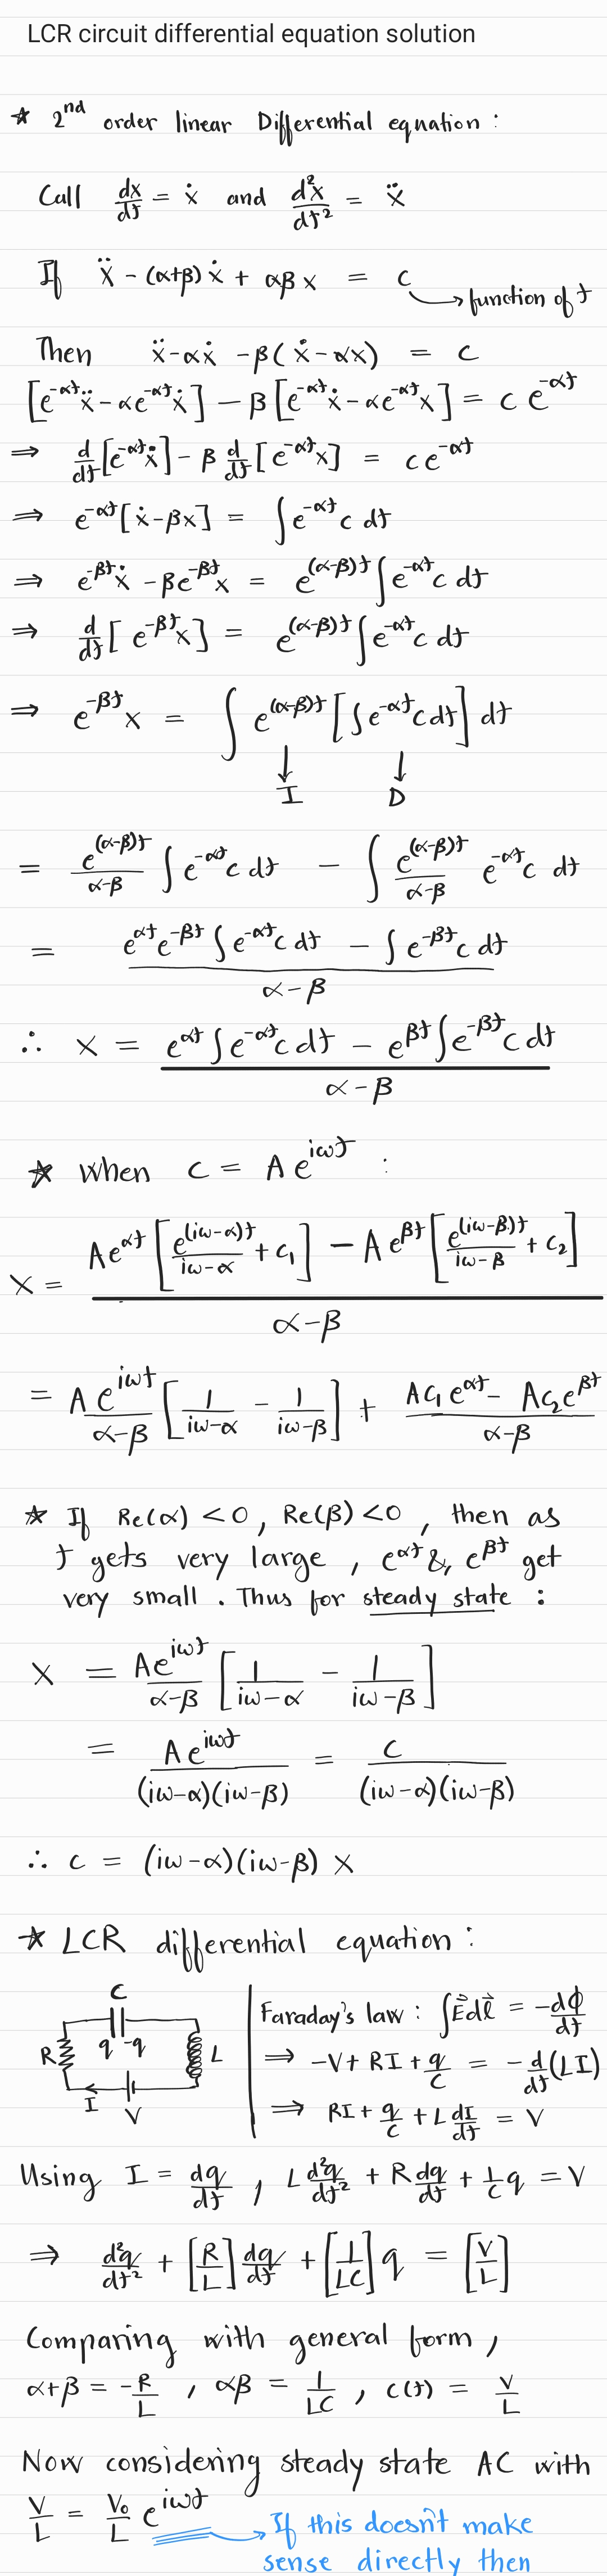 LCR circuit differential equation solution
* 2nd order linear Differential equation :
Call dx/dt = ẋ and d²x/dt² = ẍ
If ẍ - (α+β) ẋ + αβ x = c → function of t
Then ẍ - αẋ - β(ẋ - αx) = c
[e^{-αt}ẍ - αe^{-αt}ẋ] - β[e^{-αt}ẋ - αe^{-αt}x] = c e^{-αt}
⇒ d/dt[e^{-αt}ẋ] - β d/dt[e^{-αt}x] = ce^{-αt}
⇒ e^{-αt}[ẋ - βx] = ∫e^{-αt}c dt
⇒ e^{-βt}ẋ - βe^{-βt}x = e^{(α-β)t}∫e^{-αt}c dt
⇒ d/dt[e^{-βt}x] = e^{(α-β)t}∫e^{-αt}c dt
⇒ e^{-βt}x = ∫ e^{(α-β)t} [∫e^{-αt}c dt] dt
↓ ↓
I D
= e^{(α-β)t}/(α-β) ∫e^{-αt}c dt - ∫ e^{(α-β)t}/(α-β) e^{-αt}c dt
= (e^{αt}e^{-βt}∫e^{-αt}c dt - ∫e^{-βt}c dt)/(α-β)
∴ x = (e^{αt}∫e^{-αt}c dt - e^{βt}∫e^{-βt}c dt)/(α-β)
* When c = A e^{iωt} :
x = (Ae^{αt}[e^{(iω-α)t}/(iω-α) + c₁] - A e^{βt}[e^{(iω-β)t}/(iω-β) + c₂])/(α-β)
= A e^{iωt}/(α-β) [1/(iω-α) - 1/(iω-β)] + (Ac₁e^{αt} - Ac₂e^{βt})/(α-β)
* If Re(α) <0, Re(β) <0, then as
t gets very large, e^{αt} & e^{βt} get
very small. Thus for steady state :
x = Ae^{iωt}/(α-β) [1/(iω-α) - 1/(iω-β)]
= A e^{iωt}/((iω-α)(iω-β)) = c/((iω-α)(iω-β))
∴ c = (iω-α)(iω-β) x
* LCR differential equation :
C
R q -q L
I V
Faraday's law : ∫E⃗dl⃗ = -dϕ/dt
⇒ -V + RI + q/C = -d/dt(LI)
⇒ RI + q/C + L dI/dt = V
Using I = dq/dt , L d²q/dt² + R dq/dt + 1/C q = V
⇒ d²q/dt² + [R/L] dq/dt + [1/LC] q = [V/L]
Comparing with general form,
α+β = -R/L , αβ = 1/LC , c(t) = V/L
Now considering steady state AC with
V/L = V₀/L e^{iωt} → If this doesn't make
sense directly then